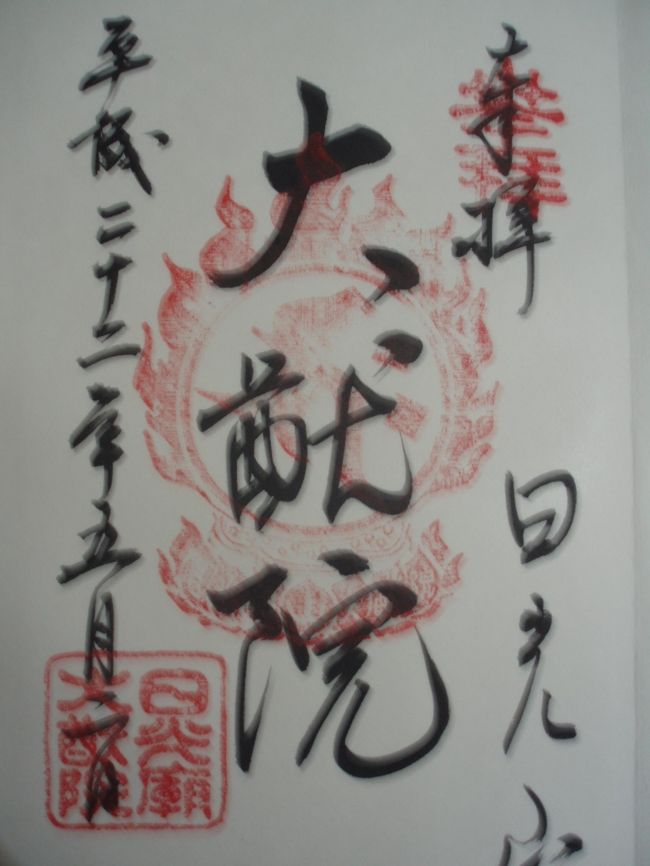 奉拝 日光山
大猷院
平成二十二年五月二日
日光廟
大猷院